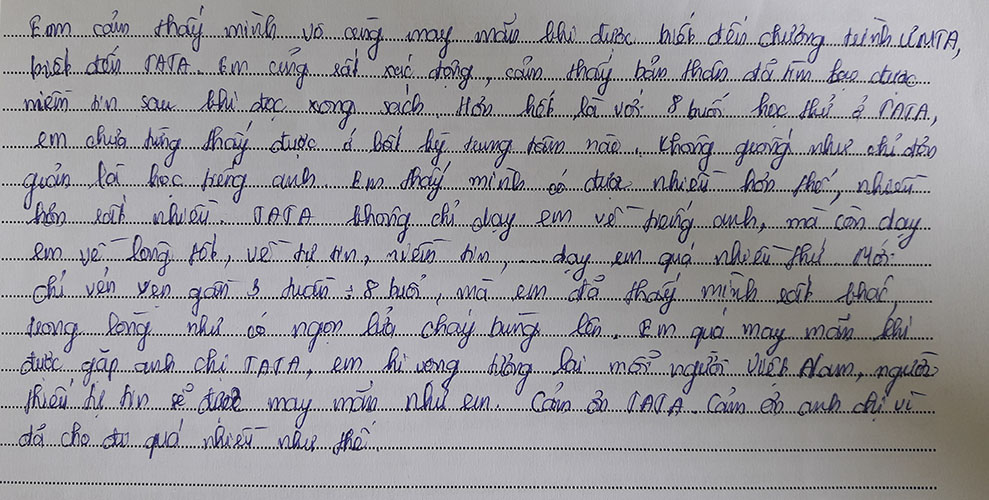 Em cảm thấy mình vô cùng may mắn khi được biết đến chương trình UMTA,
biết đến TATA. Em cũng rất xúc động, cảm thấy bản thân đã tìm lại được
niềm tin sau khi đọc xong sách. Hơn hết là với 8 buổi học thử ở TATA,
em chưa từng thấy được ở bất kỳ trung tâm nào. Không giống như chỉ đơn
giản là học tiếng anh. Em thấy mình có được nhiều hơn thế, nhiều
hơn rất nhiều. TATA không chỉ dạy em về tiếng anh, mà còn dạy
em về lòng tốt, về tự tin, niềm tin, dạy em quá nhiều thứ. Mới
chỉ vẻn vẹn gần 3 tuần : 8 buổi, mà em đã thấy mình rất khác,
trong lòng như có ngọn lửa cháy bừng lên. Em quá may mắn khi
được gặp anh chị TATA, em hi vọng tương lai mỗi người Việt Nam, người
thiếu tự tin sẽ được may mắn như em. Cảm ơn TATA. Cảm ơn anh chị vì
đã cho đi quá nhiều như thế.